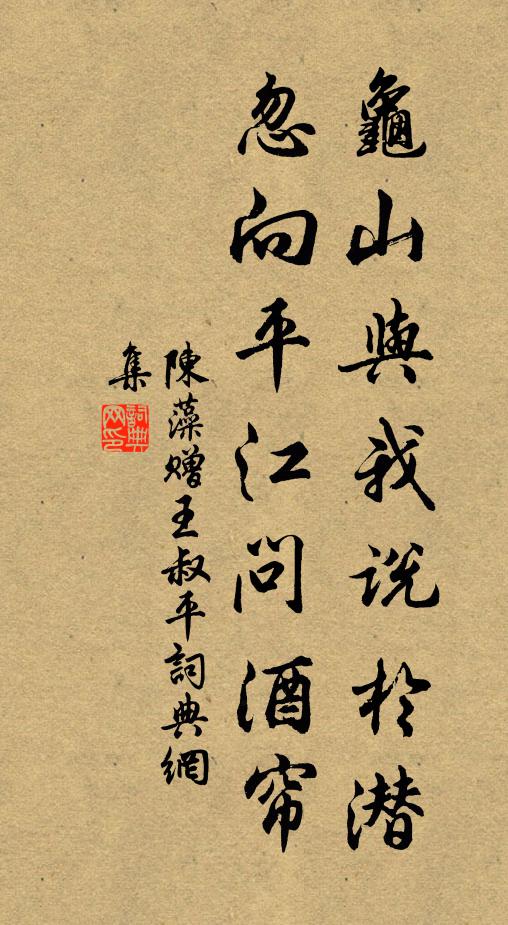 龜山與我說於潛
忽向平江問酒帘
陳藻贈王叔平詞典網
集
詞典
网印